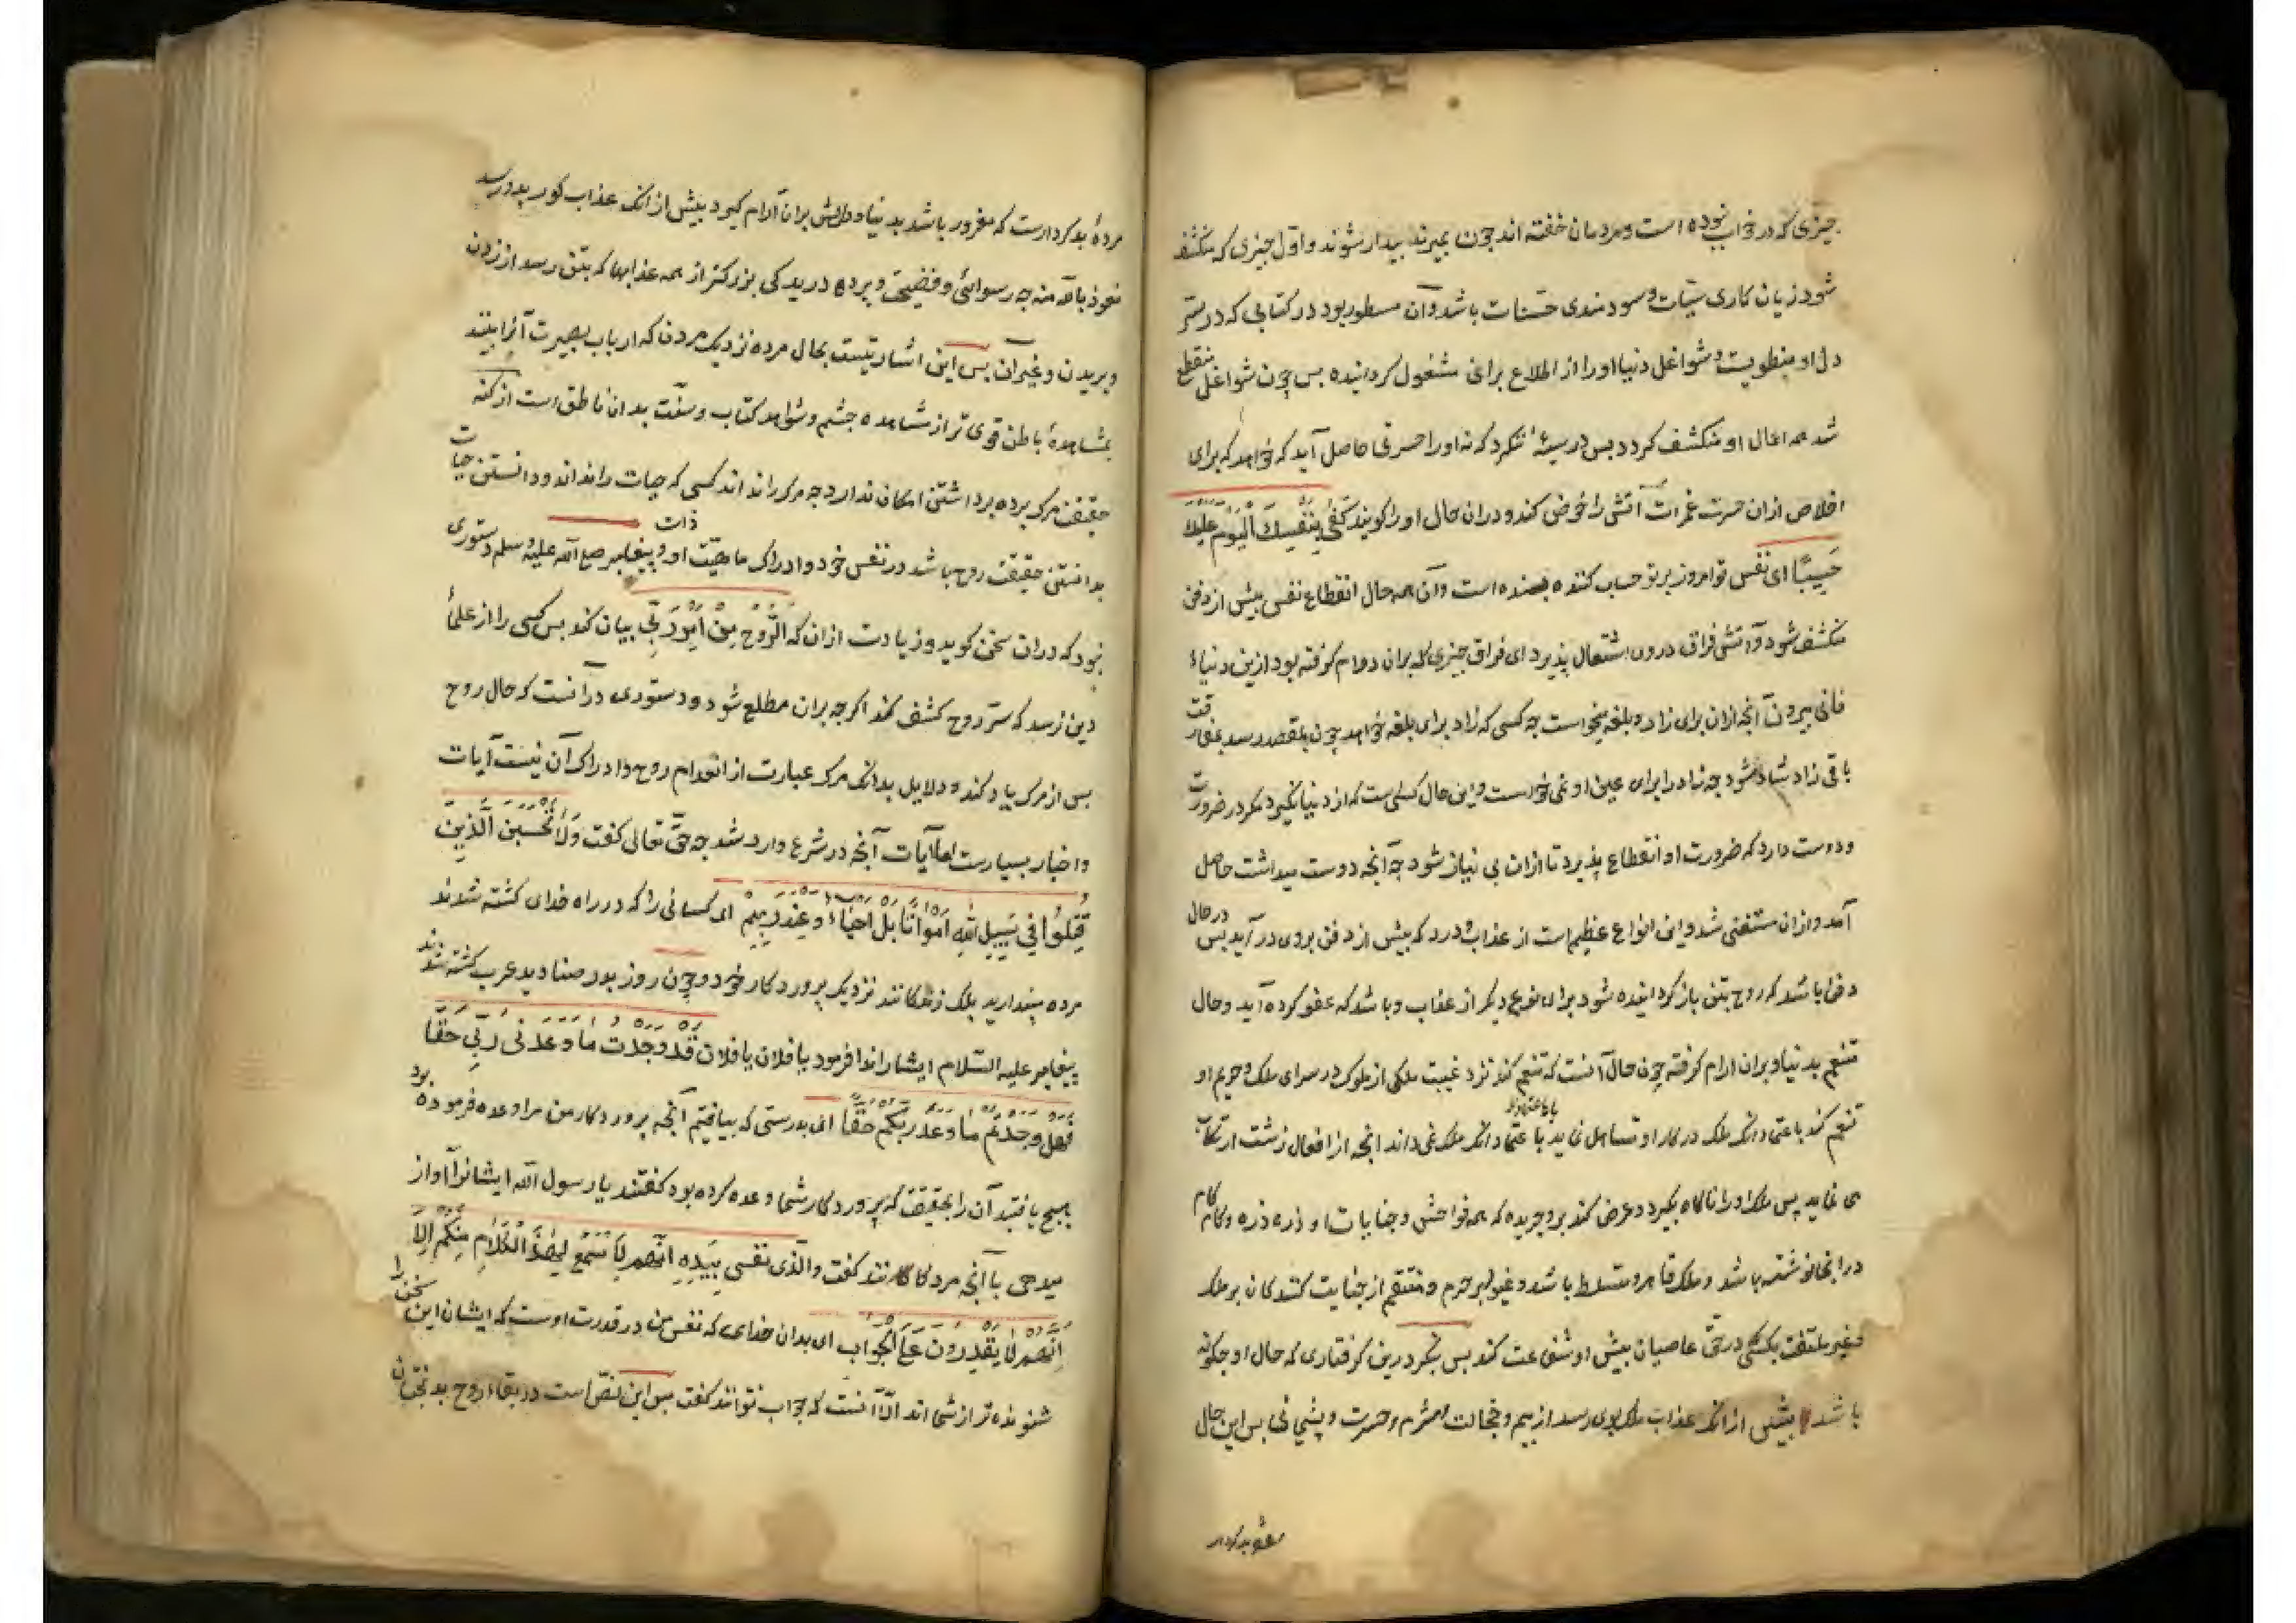 چیزی که در خواب نبوده است و مردمان خفته اند چون بمیرند بیدار شوند و اول چیزی که منکشف
شود زیان کاری سیّئات و سودمندی حسنات باشد و آن مسطور بود در کتابی که در ستر
دل او منطویست و شواغل دنیا او را از اطلاع بران مشغول کردانیده بس چون شواغل منقطع
شد همه اعمال او منکشف کردد بس در سیئهٔ ننکرد که نه او را حسرتی حاصل آید که خواهد که برای
اخلاص ازان حسرت غمرات آتش را خوض کند و دران حال او را کویند كَفَىٰ بِنَفْسِكَ الْيَوْمَ عَلَيْكَ
حَسِيبًا ای نفس تو امروز بر تو حساب کننده بسنده است و آن همه حال انقطاع نفس بیش از دفن
منکشف شود و آتش فراق درون اشتعال پذیرد ای فراق چیزی که بران دوام کرفته بود ازین دنیاء
فانی بیرون آنچه ازان برای زاد و بلغه میخواست چه کسی که زاد برای بلغه خواهد چون بمقصد رسد بمفارقت
باقی زاد شاد شود چه زاد را برای عین او نمی خواست و این حال کسی است که از دنیا نکیرد مکر در ضرورت
و دوست دارد که ضرورت او انقطاع پذیرد تا ازان بی نیاز شود چه آنچه دوست میداشت حاصل
آمد و ازان مستغنی شد و این انواع عظیم است از عذاب و درد که بیش از دفن بروی در آید بس در حال
دفن باشد که روح بتن باز کردانیده شود برای نوع دیکر از عذاب و باشد که عفو کرده آید و حال
متنعم بدنیا و بران آرام کرفته چون حال آنست که تنعم کند نزد غیبت ملکی از ملوک در سرای ملک و حریم او
تنعم کند باعتماد آنکه ملک در کار او تساهل نماید یا باعتماد آنکه ملک نمی داند آنچه از افعال زشت ارتکاب
می نماید پس ملک او را ناکاه بکیرد و عرض کند برو جریده که همه فواحش و جنایات او ذره ذره و کام کام
در آنجا نوشته باشد و ملک قاهر و متسلط باشد و غیور بر حرم و منتقم از جنایت کنندکان بر ملک
و غیر ملتفت بکسی که در حق عاصیان بیش او شفاعت کند بس بنکر درین کرفتاری که حال او چکونه
باشد بیش از آنکه عذاب ملک بوی رسد از بیم و خجالت و شرم و حسرت و پشیمانی بس این حال
مردهٔ بدکردارست که مغرور باشد بدنیا و دلش بران آرام کیرد بیش از آنکه عذاب کور بدو رسد
نعوذ بالله منه چه رسوائی و فضیحت و پرده دریدکی بزرکتر از همه عذابها که بتن رسد از زدن
و بریدن و غیر آن بس این اشارتیست بحال مرده نزدیک مردن که ارباب بصیرت آنرا بینند
بمشاهدهٔ باطن قوی تر از مشاهده چشم و شواهد کتاب و سنّت بدان ناطق است از کنه
حقیقت مرک پرده برداشتن امکان ندارد چه مرک را نداند کسی که حیات را نداند و دانستن حیات
بدانستن حقیقت روح باشد در نفس خود و ادراک ماهیّت ذات او و پیغامبر صلی الله علیه و سلم دستوری
نبود که دران سخن کوید و زیادت ازان که الرُّوحُ مِنْ أَمْرِ رَبِّي بیان کند بس کسی را از علماء
دین نرسد که سرّ روح کشف کند اکرچه بران مطلع شود و دستوری در آنست که حال روح
بس از مرک یاد کند و دلایل بدانکه مرک عبارت از انعدام روح و ادراک آن نیست آیات
و اخبار بسیارست اما آیات آنچه در شرع وارد شد چه حق تعالی کفت وَلَا تَحْسَبَنَّ الَّذِينَ
قُتِلُوا فِي سَبِيلِ اللَّهِ أَمْوَاتًا بَلْ أَحْيَاءٌ عِنْدَ رَبِّهِمْ ای کسانی را که در راه خدای کشته شدند
مرده مپندارید بلک زندکانند نزدیک پروردکار خود و چون روز بدر صنادید عرب کشته شدند
پیغامبر علیه السّلام ایشانرا ندا فرمود یا فلان یا فلان قَدْ وَجَدْتُ مَا وَعَدَنِي رَبِّي حَقًّا
فَهَلْ وَجَدْتُمْ مَا وَعَدَ رَبُّكُمْ حَقًّا ای بدرستی که بیافتیم آنچه پروردکار من مرا وعده فرموده بود
هیچ یافتید آن را بحقیقت که پروردکار شما وعده کرده بود کفتند یا رسول الله ایشانرا آواز
میدهی با آنچه مردکانند کفت والّذی نفسی بیده إنّهم لأسمع لهذا الكلام منكم إلّا
إنّهم لا يقدرون على الجواب ای بدان خدای که نفس من در قدرت اوست که ایشان این سخن را
شنونده تر از شما اند الّا آنست که جواب نتوانند کفت بس این نصّ است در بقاء روح بدبختان